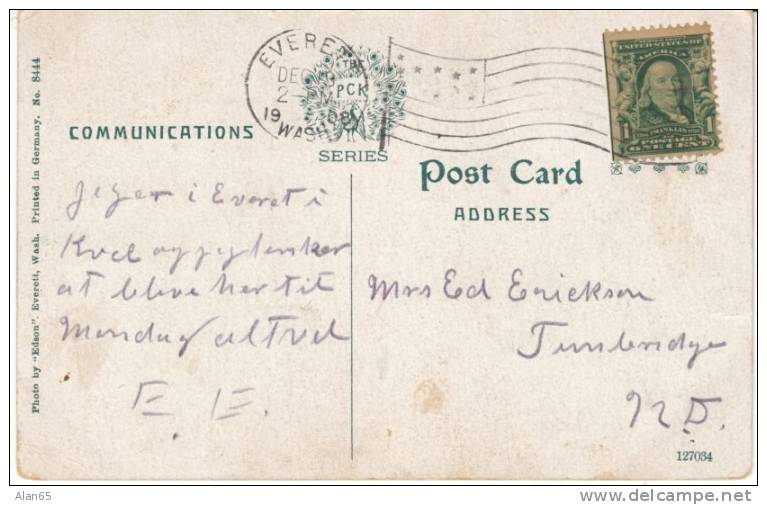 Photo by "Edson". Everett, Wash. Printed in Germany. No. 8444
EVERETT
DEC
2
1908
WASH
THE
PCK
SERIES
COMMUNICATIONS
UNITED STATES OF
AMERICA
1 FRANKLIN 1
POSTAGE
ONE CENT
Post Card
ADDRESS
Jeg er i Everet i
Kvel og jeg tenker
at blive her til
Monday alt vel
E. E.
Mrs Ed Erickson
Tunbridge
N.D.
127034
Alan65
delcampe.net